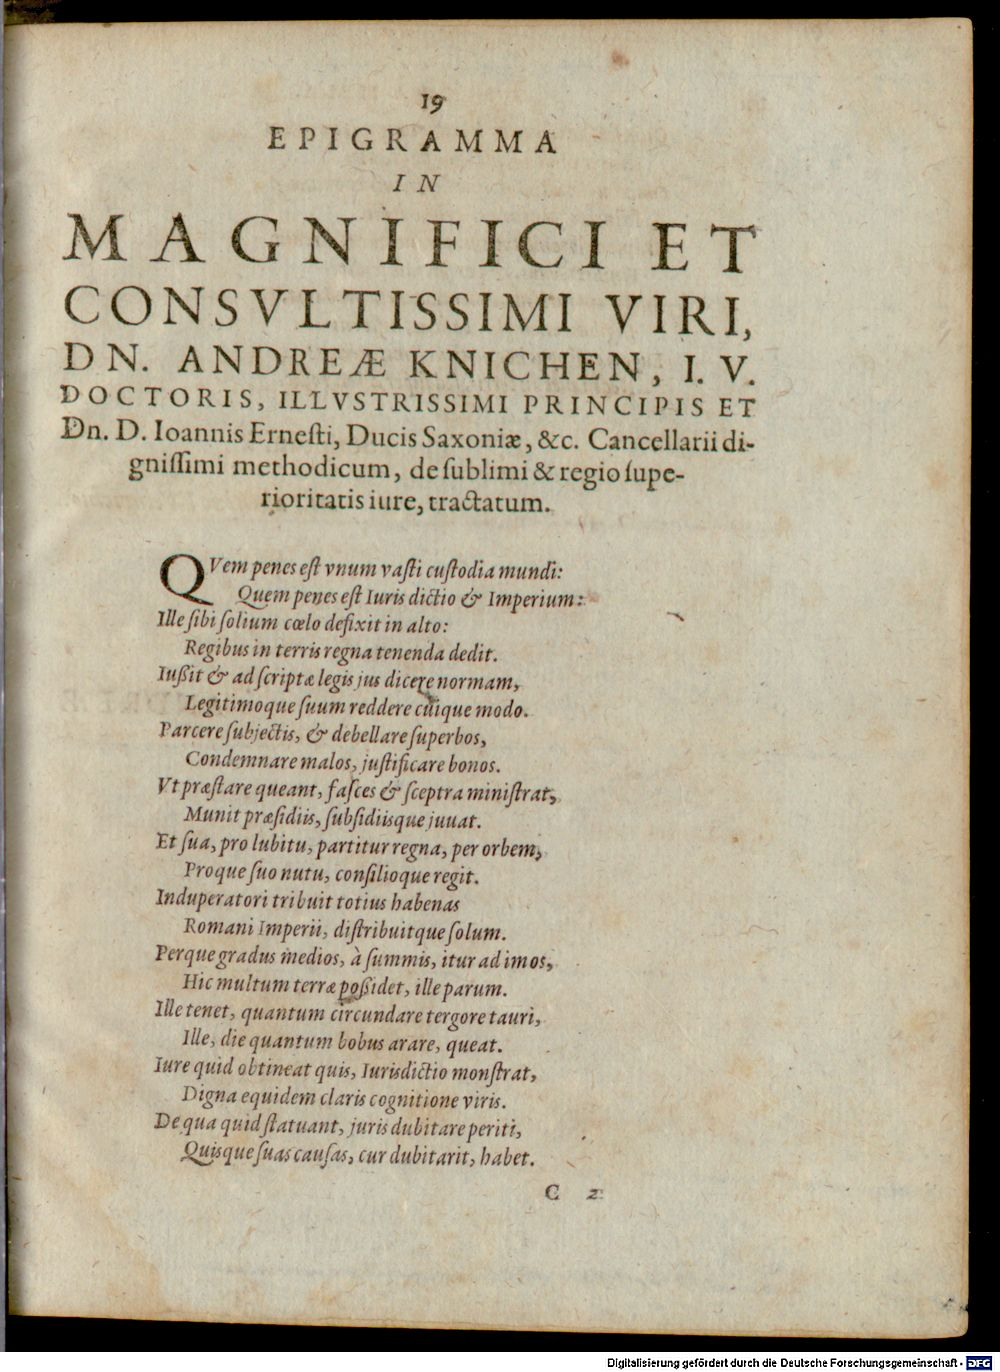 19
EPIGRAMMA
IN
MAGNIFICI ET
CONSVLTISSIMI VIRI,
DN. ANDREÆ KNICHEN, I. V.
DOCTORIS, ILLVSTRISSIMI PRINCIPIS ET
Dn. D. Ioannis Erneſti, Ducis Saxoniæ, &c. Cancellarii di-
gniſſimi methodicum, de ſublimi & regio ſupe-
rioritatis iure, tractatum.
QVem penes eſt vnum vaſti cuſtodia mundi:
Quem penes eſt Iuris dictio & Imperium:
Ille ſibi ſolium cœlo defixit in alto:
Regibus in terris regna tenenda dedit.
Iußit & ad ſcriptæ legis jus dicere normam,
Legitimoque ſuum reddere cuique modo.
Parcere ſubjectis, & debellare ſuperbos,
Condemnare malos, juſtificare bonos.
Vt præſtare queant, faſces & ſceptra miniſtrat,
Munit præſidiis, ſubſidiisque juvat.
Et ſua, pro lubitu, partitur regna, per orbem,
Proque ſuo nutu, conſilioque regit.
Induperatori tribuit totius habenas
Romani Imperii, diſtribuitque ſolum.
Perque gradus medios, à ſummis, itur ad imos,
Hic multum terræ poßidet, ille parum.
Ille tenet, quantum circundare tergore tauri,
Ille, die quantum bobus arare, queat.
Iure quid obtineat quis, Iurisdictio monſtrat,
Digna equidem claris cognitione viris.
De qua quid ſtatuant, juris dubitare periti,
Quisque ſuas cauſas, cur dubitarit, habet.
C 2
Digitalisierung gefördert durch die Deutsche Forschungsgemeinschaft - DFG